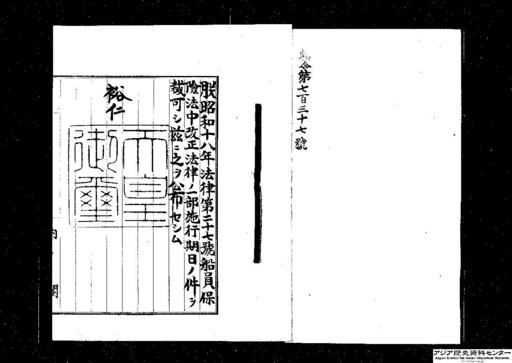 勅令第七百三十七號
朕昭和十八年法律第二十七號船員保
險法中改正法律ノ一部施行期日ノ件ヲ
裁可シ玆ニ之ヲ公布セシム
裕仁
天皇
御璽
内 閣
アジア歴史資料センター
Japan Center for Asian Historical Records